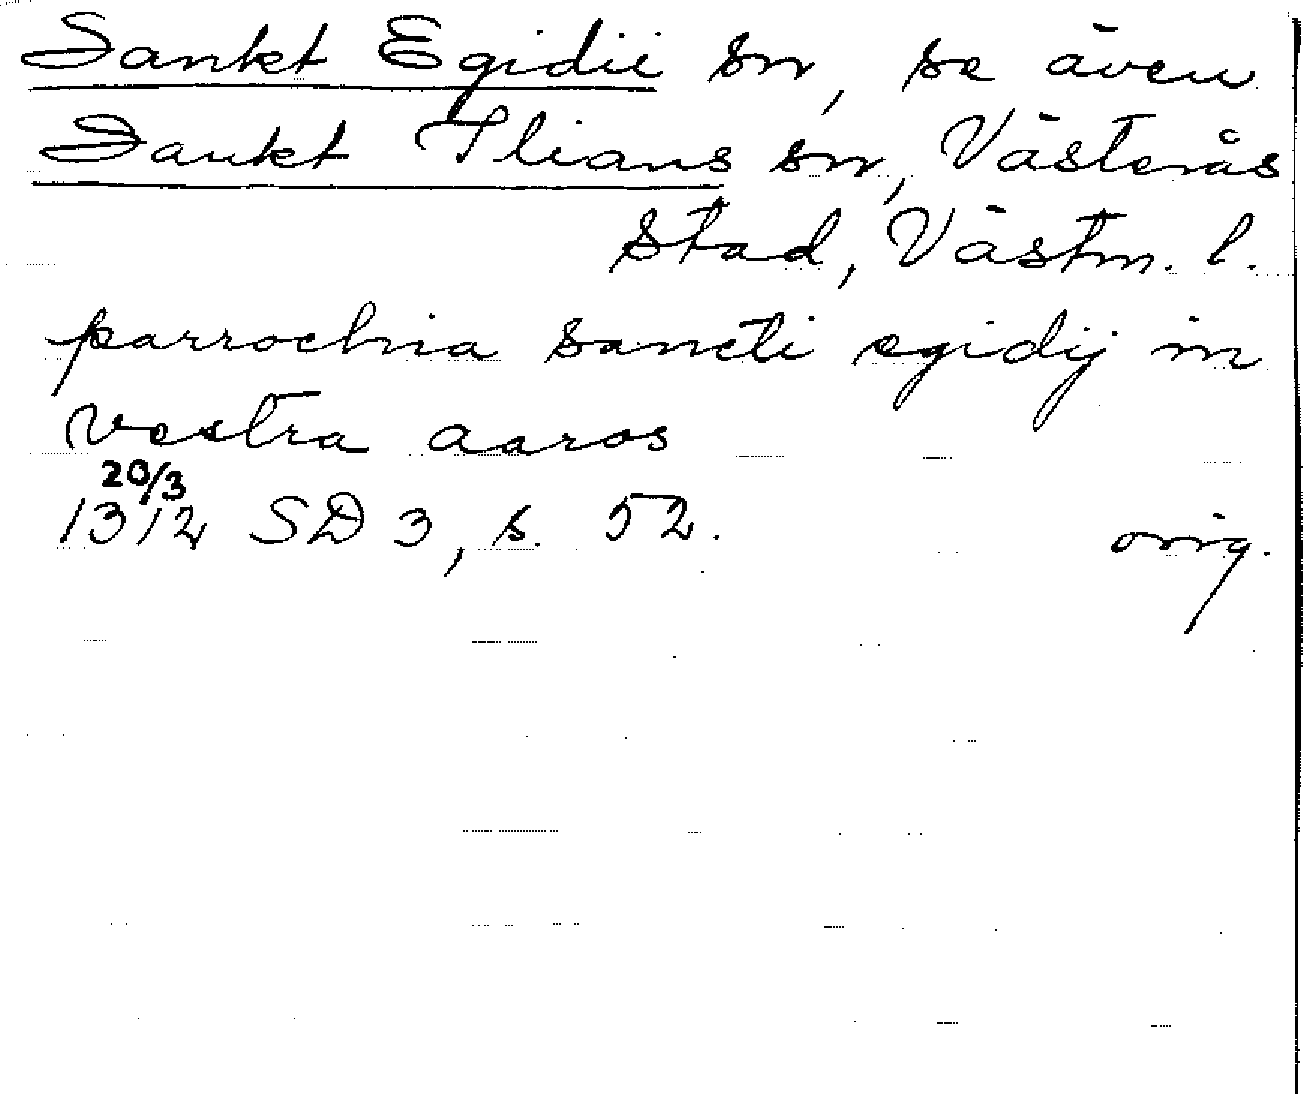 Sankt Egidii sn, se även
Sankt Ilians sn, Västerås
stad, Västm. l.
parrochia sancti egidij in
vestra aaros
20/3
1312 SD 3, s. 52. orig.